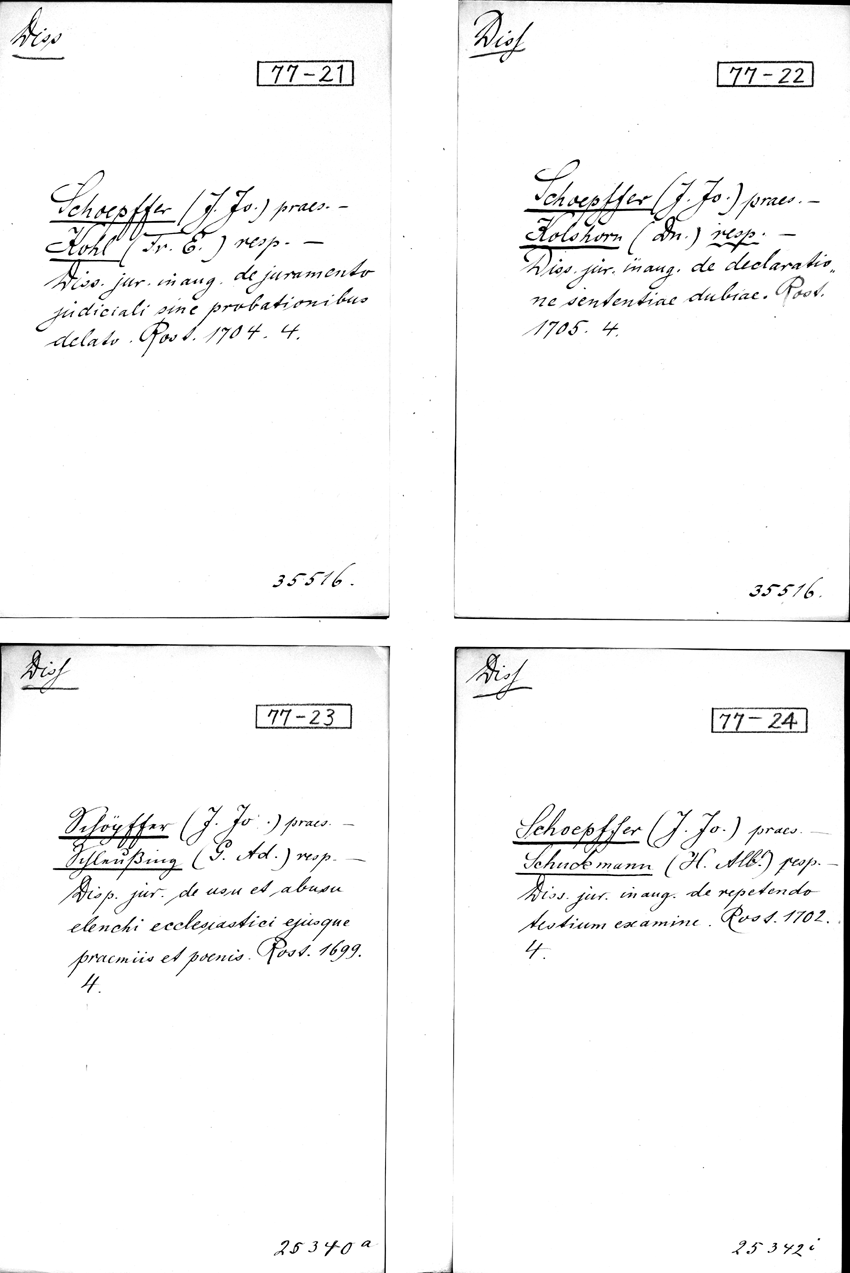 Diss
77-21
Schoepffer (J. Jo.) praes. —
Kohl (Fr. E.) resp. —
Diss. jur. inaug. de juramento
judiciali sine probationibus
delato. Rost. 1704. 4.
35516.
Diss
77-22
Schoepffer (J. Jo.) praes. —
Kolshorn (Dn.) resp. —
Diss. jur. inaug. de declaratio„
ne sententiae dubiae. Rost.
1705. 4.
35516.
Diss
77-23
Schöpffer (J. Jo.) praes. —
Schleußing (G. Ad.) resp. —
Disp. jur. de usu et abusu
elenchi ecclesiastici ejusque
praemiis et poenis. Rost. 1699.
4.
25340a
Diss
77-24
Schoepffer (J. Jo.) praes. —
Schuckmann (H. Alb.) resp. —
Diss. jur. inaug. de repetendo
testium examine. Rost. 1702.
4.
25342i